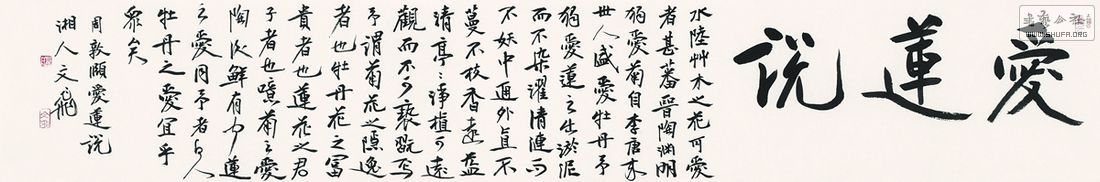 愛蓮說
水陸艸木之花可愛
者甚蕃晉陶淵明
獨愛菊自李唐來
世人盛愛牡丹予
獨愛蓮之出淤泥
而不染濯清漣而
不妖中通外直不
蔓不枝香遠益
清亭亭淨植可遠
觀而不可褻翫焉
予謂菊花之隱逸
者也牡丹花之富
貴者也蓮花之君
子者也噫菊之愛
陶後鮮有聞蓮
之愛同予者何人
牡丹之愛宜乎
眾矣
周敦頤愛蓮說
湘人文
WWW.SHUFA.ORG